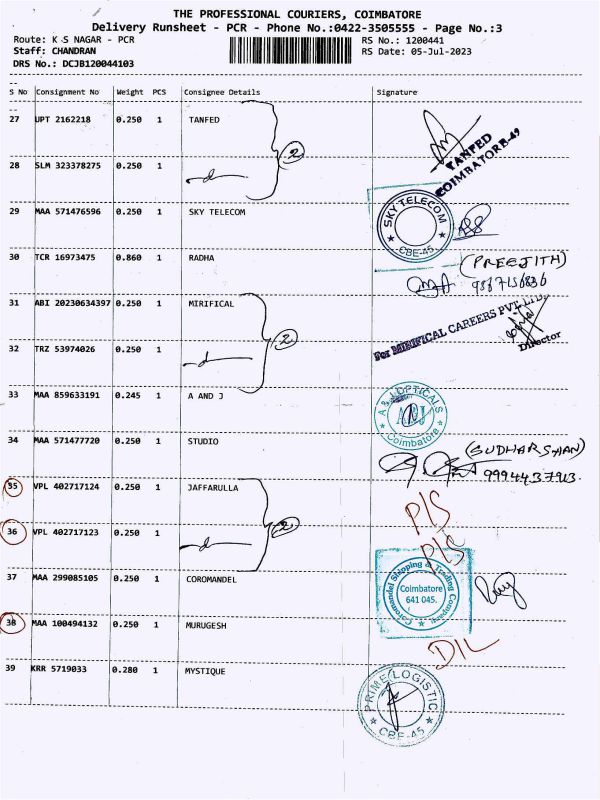 THE PROFESSIONAL COURIERS, COIMBATORE
Delivery Runsheet - PCR - Phone No.:0422-3505555 - Page No.:3
Route: K S NAGAR - PCR RS No.: 1200441
Staff: CHANDRAN RS Date: 05-Jul-2023
DRS No.: DCJB120044103
S No Consignment No Weight PCS Consignee Details Signature
27 UPT 2162218 0.250 1 TANFED
2
TANFED
COIMBATORE-49
28 SLM 323378275 0.250 1
29 MAA 571476596 0.250 1 SKY TELECOM
SKY TELECOM
CBE-45
30 TCR 16973475 0.860 1 RADHA
(PREEJITH)
31 ABI 20230634397 0.250 1 MIRIFICAL
2
For MIRIFICAL CAREERS PVT LTD
Director
32 TRZ 53974026 0.250 1
33 MAA 859633191 0.245 1 A AND J
A & J OPTICALS
A&J
Coimbatore
34 MAA 571477720 0.250 1 STUDIO
(SUDHARSHAN)
35 VPL 402717124 0.250 1 JAFFARULLA
2
P/S
36 VPL 402717123 0.250 1
P/S
37 MAA 299085105 0.250 1 COROMANDEL
Coromandel Shipping & Trading Company
Coimbatore
641 045.
38 MAA 100494132 0.250 1 MURUGESH
D/L
39 KRR 5719033 0.280 1 MYSTIQUE
PRIME LOGISTIC
CBE-45